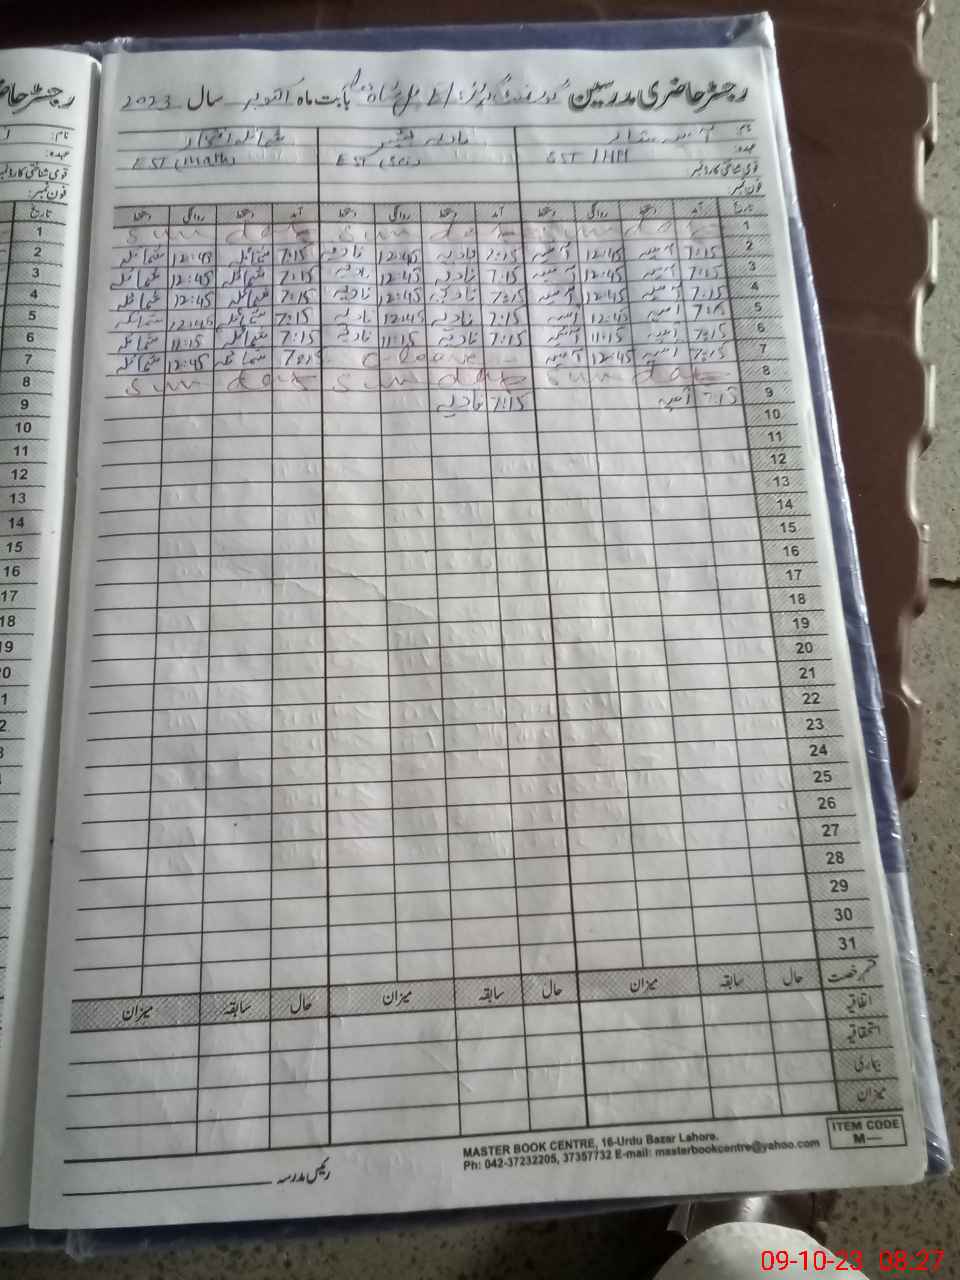 رجسٹر حاضری مدرسین گورنمنٹ گرلز بابت ماہ اکتوبر سال 2023
نام:
عہدہ: SST IHM EST (Sci) EST (Math)
قومی شناختی کارڈ نمبر
فون نمبر:
تاریخ آمد دستخط روانگی دستخط آمد دستخط روانگی دستخط آمد دستخط روانگی دستخط
1 Sunday Sunday Sunday
2 7:15 آسیہ 12:45 آسیہ 7:15 نادیہ 12:45 نادیہ 7:15 شمائلہ 12:45 شمائلہ
3 7:15 آسیہ 12:45 آسیہ 7:15 نادیہ 12:45 نادیہ 7:15 شمائلہ 12:45 شمائلہ
4 7:15 آسیہ 12:45 آسیہ 7:15 نادیہ 12:45 نادیہ 7:15 شمائلہ 12:45 شمائلہ
5 7:15 آسیہ 12:45 آسیہ 7:15 نادیہ 12:45 نادیہ 7:15 شمائلہ 12:45 شمائلہ
6 7:15 آسیہ 11:15 آسیہ 7:15 نادیہ 11:15 نادیہ 7:15 شمائلہ 11:15 شمائلہ
7 7:15 آسیہ 12:45 آسیہ 7:15 شمائلہ 12:45 شمائلہ
8 Sunday Sunday Sunday
9 7:15 آسیہ 7:15 نادیہ
10
11
12
13
14
15
16
17
18
19
20
21
22
23
24
25
26
27
28
29
30
31
قسم رخصت حال سابقہ میزان حال سابقہ میزان حال سابقہ میزان
اتفاقیہ
استحقاقیہ
بیماری
میزان
رئیس مدرسہ
MASTER BOOK CENTRE, 16-Urdu Bazar Lahore.
Ph: 042-37232205, 37357732 E-mail: masterbookcentre@yahoo.com
ITEM CODE
M—
09-10-23 08:27